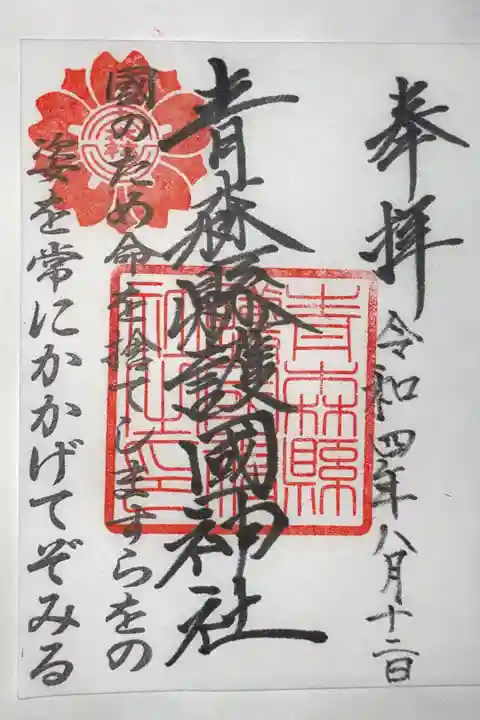 奉拝
令和四年八月十二日
青森縣護國神社
國のため命を捨てしますらをの
姿を常にかかげてぞみる
青森縣
護國神
社之印